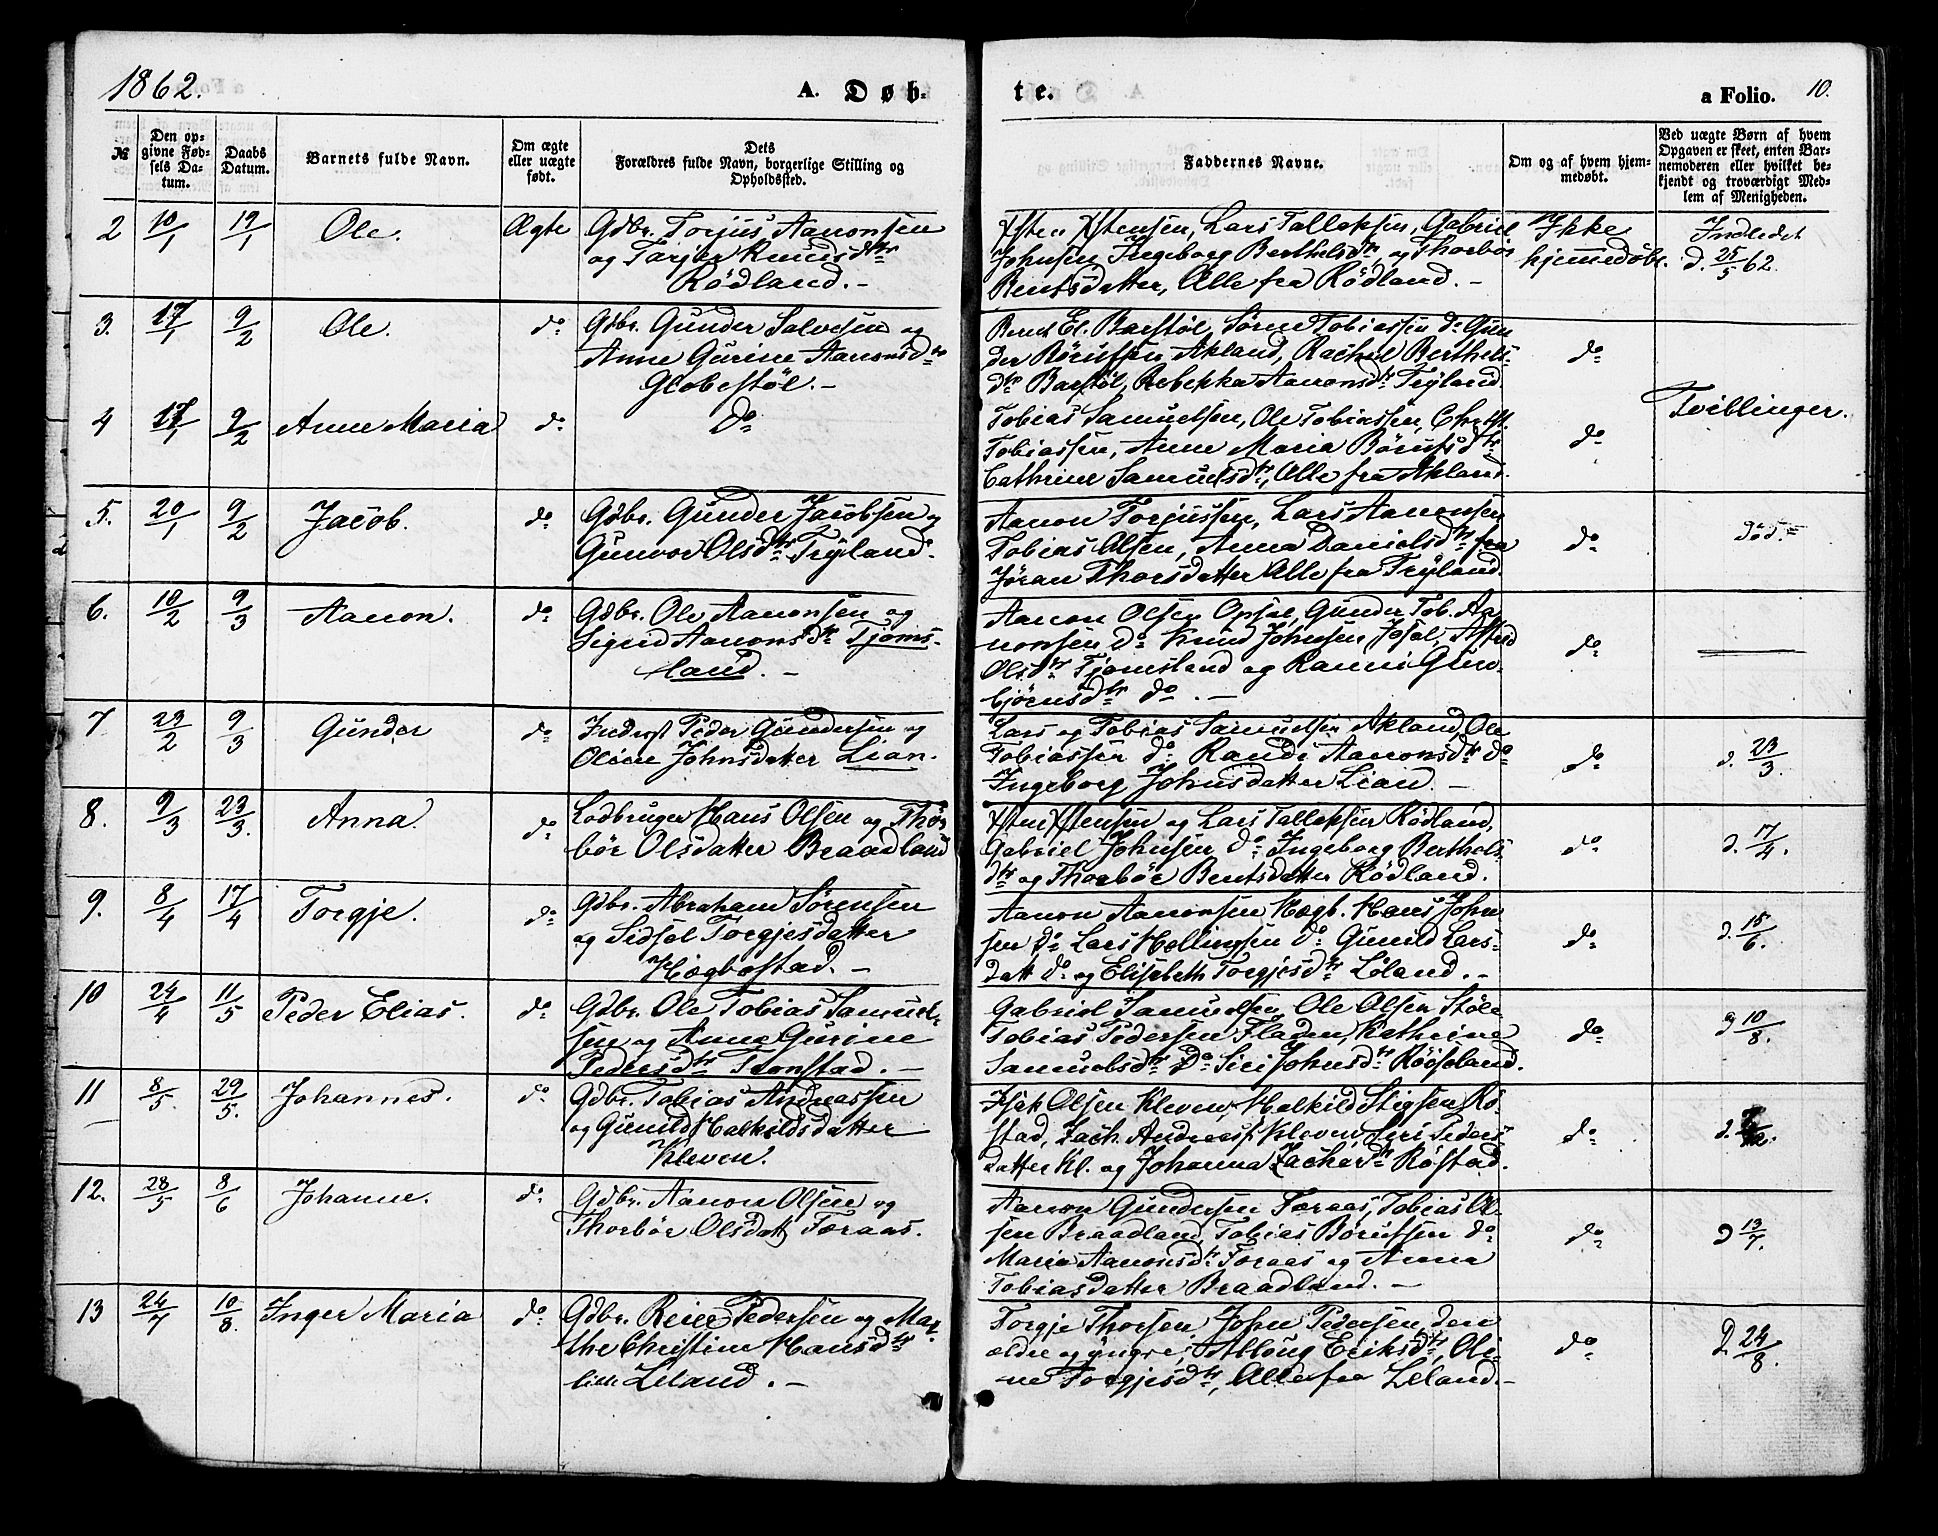 1862.
A. Døb-
te.
a Folio. 10.
№
Den op-
givne Fød-
sels Da-
tum.
Daabs
Datum.
Barnets fulde Navn.
Om ægte
eller uægte
født.
Dets
Forældres fulde Navn, borgerlige Stilling og
Opholdssted.
Faddernes Navne.
Om og af hvem hjem-
medøbt.
Ved uægte Børn af hvem
Opgaven er skeet, enten Bar-
nemoderen eller hvilket be-
kjendt og troværdigt Med-
lem af Menigheden.
2 10/1 19/1 Ole. Ægte Gdbr. Torjus Aanonsen
og Tarjer Knudsdtr
Rødland. -
Lars Tallaksen, Gabriel
Johnsen Ingeborg Berthelsdtr, og Thorbør
Bentsdatter, Alle fra Rødland. -
Ikke
hjemmedøbt.
Indledet
d. 25/5 62.
3. 17/1 9/2 Ole. do Gdbr. Gunder Salvesen og
Anne Gurine Aanonsdtr
Globestøl. -
Bernt El. Barstøl, Søren Tobiassen do Gun-
der Børufsen Akland, Rachel Berthels-
dtr Barstøl, Rebekka Aanonsdtr Trÿland.
do
4 17/1 9/2 Anne Maria do do
Tobias Samuelsen, Ole Tobiassen,
Tobiassen, Anne Maria Børufsdtr
Cathrine Samuelsdtr, Alle fra Akland.
do
Tvillinger.
5. 20/1 9/2 Jacob. do Gdbr. Gunder Jacobsen og
Gunvor Olsdtr Trÿland.
Aanon Torjussen, Lars Aanonsen
Tobias Olsen, Anna Danielsdtr fra
Jøran Thorsdatter Alle fra Trÿland.
do
død.
6. 10/2 9/3 Aanon. do Gdbr. Ole Aanonsen og
Sigrid Aanonsdtr Tjoms-
land. -
Aanon Olsen Opsal, Gunder Tob. Aa-
nonsen do Knud Johnsen
Olsdtr Tjomsland og Ranni Gun-
bjørnsdtr do. -
do
7 23/2 9/3 Gunder do Inderst Peder Gundersen og
Oline Johnsdatter Lian.
Lars og Tobias Samuelsen Akland, Ole
Tobiassen do Randi Aanonsdtr do
Ingeborg Johnsdatter Lian. -
do
d. 23/3.
8. 9/3 23/3. Anna. do Lodbruger Hans Olsen og Thor-
bør Olsdatter Braadland
og Lars Tallaksen Rødland,
Gabriel Johnsen do Ingeborg Berthels-
dtr og Thorbør Bentsdatter Rødland.
do
d. 17/4.
9. 8/4 17/4 Torgje. do Gdbr. Abraham Sørensen
og Sidsel Torgjesdatter
Hægbostad. -
Aanon Aanonsen Hægb. Hans John-
sen do Lars Hallingsen do Gunild Lars-
datt do og Elisabeth Torgjesdtr Løland. -
do
d. 15/6.
10 24/4 11/5 Peder Elias. do Gdbr. Ole Tobias Samuel-
sen og Anne Gurine
Pedersdtr Tronstad. -
Gabriel Samuelsen, Ole Olsen Støle
Tobias Pedersen Fladen, Kathrine
Samuelsdtr do Siri Johnsdtr Røiseland.
do
d 10/8.
11 8/5. 29/5. Johannes. do Gdbr. Tobias Andreassen
og Gunild Halkildsdatter
Kleven.
Isak Olsen Kleven, Halkild Stigsen Rø-
stad, Zach. Andreass. Kleven, Siri Peders-
datter Kl. og Johanna Zachardtr Røstad.
do
12. 28/5 8/6 Johanne. do Gdbr. Aanon Olsen og
Thorbør Olsdatt Føraas.
Aanon Gundersen Føraas, Tobias Ol-
sen Braadland, Tobias Børufsen do
Maria Aanonsdtr Føraas og Anne
Tobiasdatter Braadland. -
do
d 13/7.
13 24/7 10/8. Inger Maria do Gdbr. Reier Pedersen og Mar-
the Christine Hansdtr
lille Leland. -
Torgje Thorsen, John Pedersen den
ældre og yngre, Allong Eriksdtr, Oli-
ne Torgjesdtr, Alle fra Leland. -
do
d. 24/8.